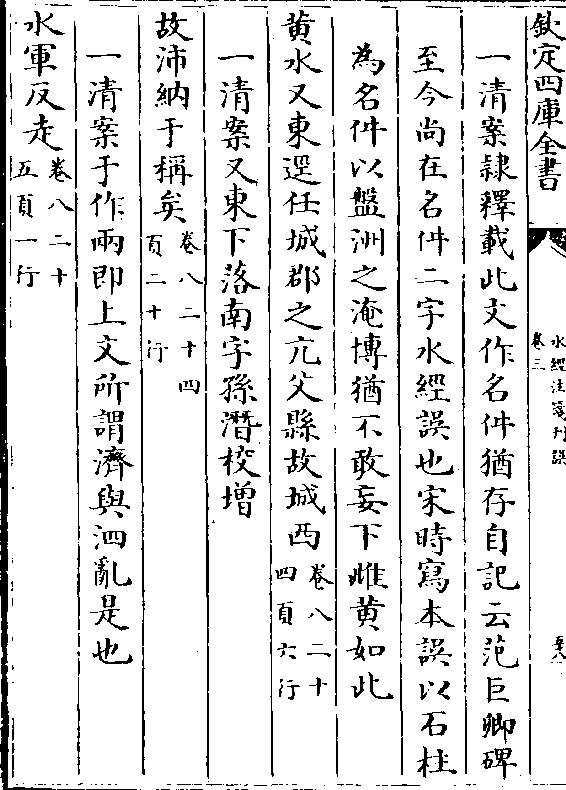 欽定四庫全書
水經注箋刊誤
卷三
一清案隸釋載此文作名件猶存自記云范巨卿碑
至今尚在名件二字水經誤也宋時寫本誤以石柱
為名件以盤洲之淹博猶不敢妄下雌黄如此
黄水又東逕任城郡之亢父縣故城西卷八二十四頁六行
一清案又東下落南字孫潛校增
故沛納于稱矣卷八二十四頁二十行
一清案于作兩即上文所謂濟與泗亂是也
水軍反走卷八二十五頁一行